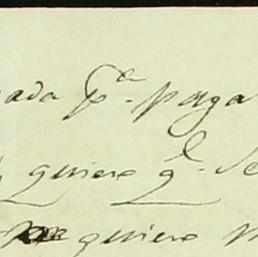 ada pª. paga
quiere q̃. Se
quiere